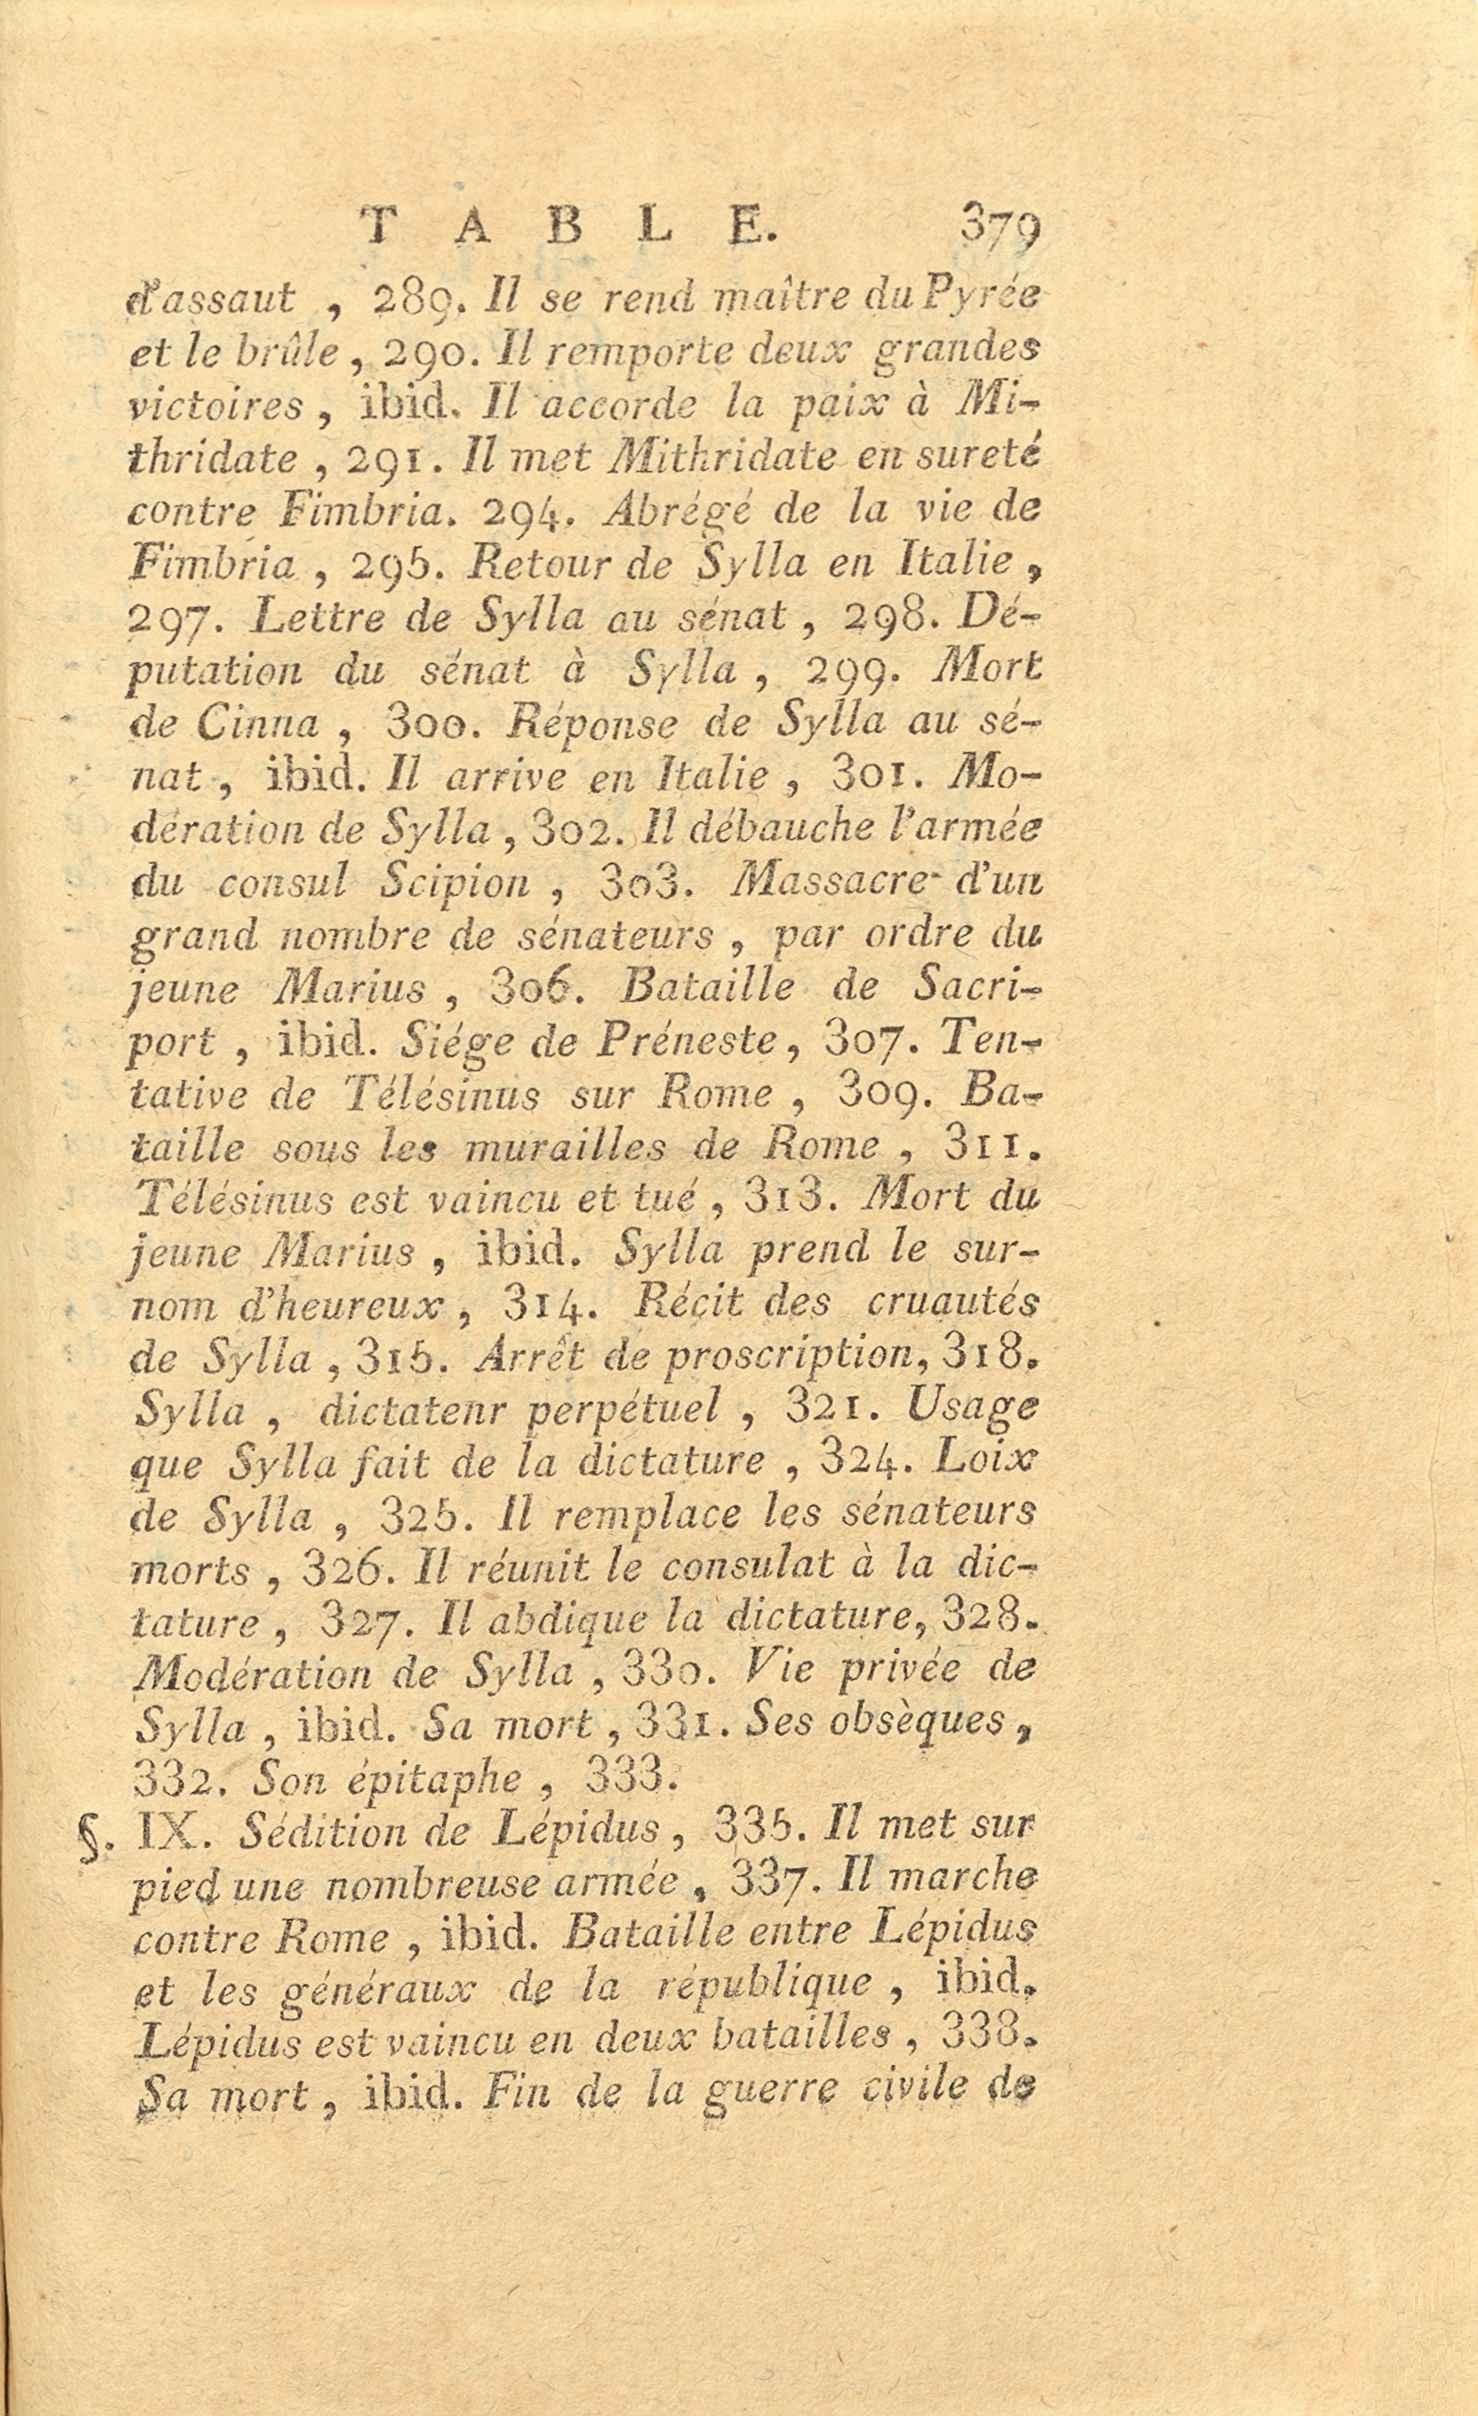 TABLE. 379
d'assaut , 289. Il se rend maître du Pyrée
et le brûle , 290. Il remporte deux grandes
victoires , ibid. Il accorde la paix à Mi-
thridate , 291. Il met Mithridate en sureté
contre Fimbria. 294. Abrégé de la vie de
Fimbria , 295. Retour de Sylla en Italie ,
297. Lettre de Sylla au sénat , 298. Dé-
putation du sénat à Sylla , 299. Mort
de Cinna , 300. Réponse de Sylla au sé-
nat , ibid. Il arrive en Italie , 301. Mo-
dération de Sylla , 302. Il débauche l'armée
du consul Scipion , 303. Massacre d'un
grand nombre de sénateurs , par ordre du
jeune Marius , 306. Bataille de Sacri-
port , ibid. Siége de Préneste , 307. Ten-
tative de Télésinus sur Rome , 309. Ba-
taille sous les murailles de Rome , 311.
Télésinus est vaincu et tué , 313. Mort du
jeune Marius , ibid. Sylla prend le sur-
nom d'heureux , 314. Récit des cruautés
de Sylla , 315. Arrêt de proscription , 318.
Sylla , dictatenr perpétuel , 321. Usage
que Sylla fait de la dictature , 324. Loix
de Sylla , 325. Il remplace les sénateurs
morts , 326. Il réunit le consulat à la dic-
tature , 327. Il abdique la dictature , 328.
Modération de Sylla , 330. Vie privée de
Sylla , ibid. Sa mort , 331. Ses obsèques ,
332. Son épitaphe , 333.
§. IX. Sédition de Lépidus , 335. Il met sur
pied une nombreuse armée , 337. Il marche
contre Rome , ibid. Bataille entre Lépidus
et les généraux de la république , ibid.
Lépidus est vaincu en deux batailles , 338.
Sa mort , ibid. Fin de la guerre civile de